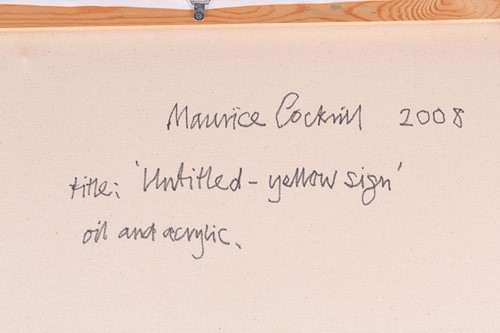 Maurice Cockrill 2008
title: 'Untitled - yellow sign'
oil and acrylic.